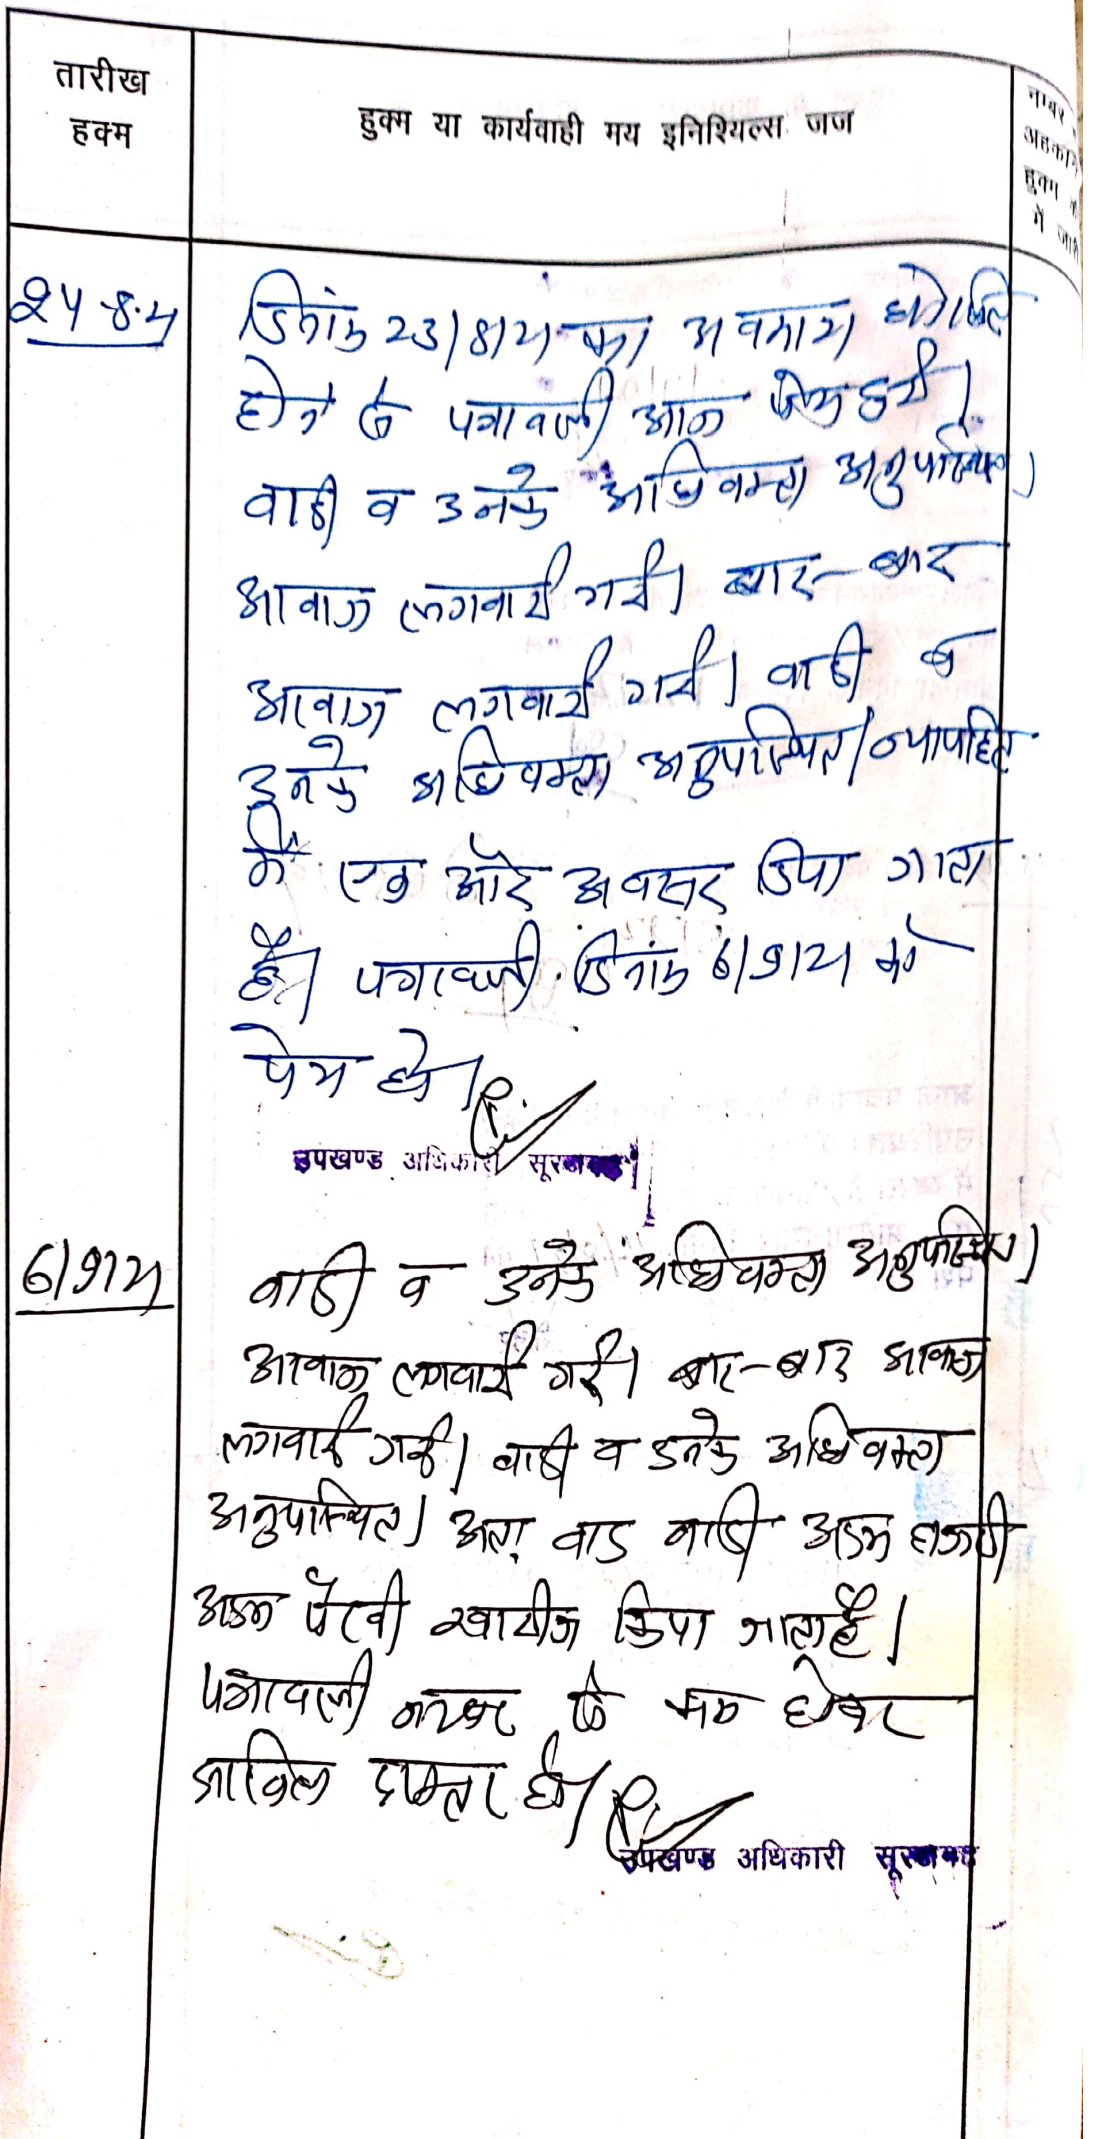 तारीख
हुक्म
हुक्म या कार्यवाही मय इनिशियल्स जज
नम्बर
अहकाम
हुक्म
में जारी
24-8-21
दिनांक 23/8/21 का अवकाश घोषित
होने से पत्रावली आज पेश हुई।
वादी व उनके अधिवक्ता अनुपस्थित।
आवाज लगवाई गई। बार-बार
आवाज लगवाई गई। वादी व
उनके अधिवक्ता अनुपस्थित। न्यायहित
में एक और अवसर दिया जाता
है। पत्रावली दिनांक 6/9/21 को
पेश हो।
उपखण्ड अधिकारी सूरजगढ़
6/9/21
वादी व उनके अधिवक्ता अनुपस्थित।
आवाज लगवाई गई। बार-बार आवाज
लगवाई गई। वादी व उनके अधिवक्ता
अनुपस्थित। अतः वाद वादी अदम हाजरी
अदम पैरवी खारीज किया जाता है।
पत्रावली नम्बर से कम होकर
दाखिल दफ्तर हो।
उपखण्ड अधिकारी सूरजगढ़